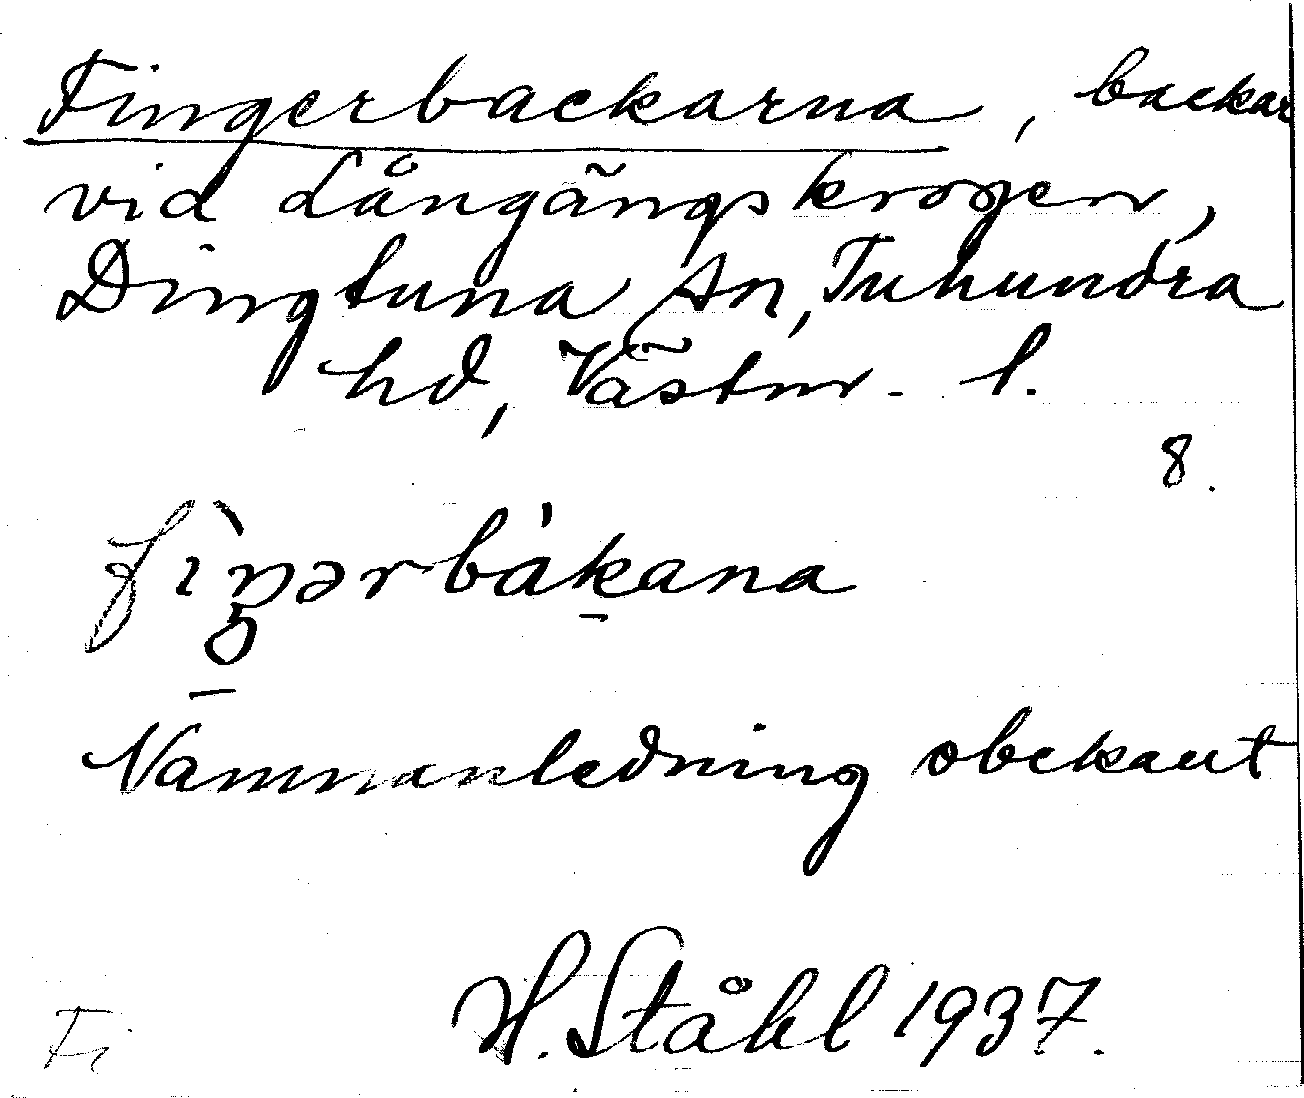 Fingerbackarna, backar
vid Långängskrogen,
Dingtuna sn, Tuhundra
hd, Västm. l.
8.
fìŋərbákana
Namnanledning obekant
H. Ståhl 1937.
Fi